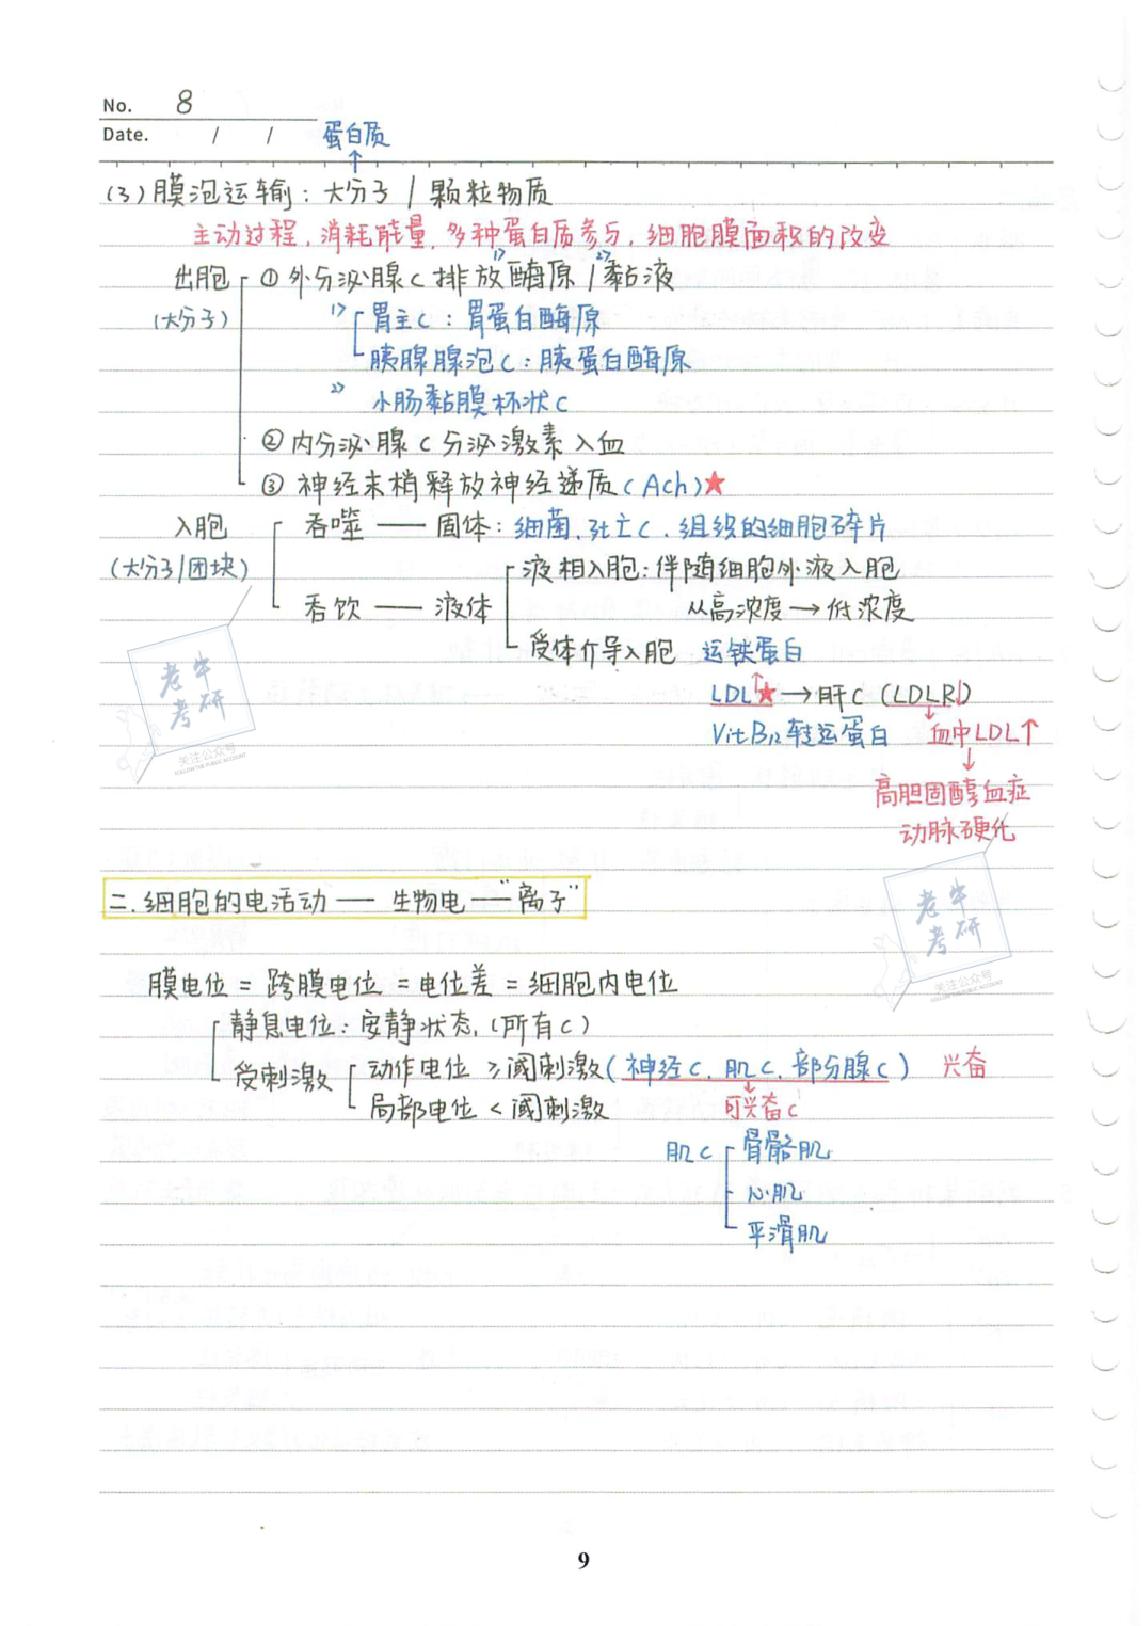 No. 8
Date. / /
蛋白质
↑
(3)膜泡运输：大分子 / 颗粒物质
主动过程，消耗能量，多种蛋白质参与，细胞膜面积的改变
出胞 ① 外分泌腺C排放 1>酶原 / 2>黏液
(大分子) 1> 胃主C：胃蛋白酶原
胰腺腺泡C：胰蛋白酶原
2> 小肠黏膜杯状C
② 内分泌腺C分泌激素入血
③ 神经末梢释放神经递质(Ach)★
入胞 吞噬 —— 固体：细菌、死亡C、组织的细胞碎片
(大分子/团块) 液相入胞：伴随细胞外液入胞
吞饮 —— 液体 从高浓度 → 低浓度
受体介导入胞 运铁蛋白
LDL★ → 肝C (LDLR↓)
VitB12转运蛋白 血中LDL↑
↓
高胆固醇血症
动脉硬化
老牛考研
关注公众号
FOLLOW THE PUBLIC ACCOUNT
二.细胞的电活动 —— 生物电 —— “离子”
老牛考研
关注公众号
FOLLOW THE PUBLIC ACCOUNT
膜电位 = 跨膜电位 = 电位差 = 细胞内电位
静息电位：安静状态，(所有C)
受刺激 动作电位 ≥阈刺激(神经C、肌C、部分腺C) 兴奋
局部电位 < 阈刺激 可兴奋C
肌C 骨骼肌
心肌
平滑肌
9